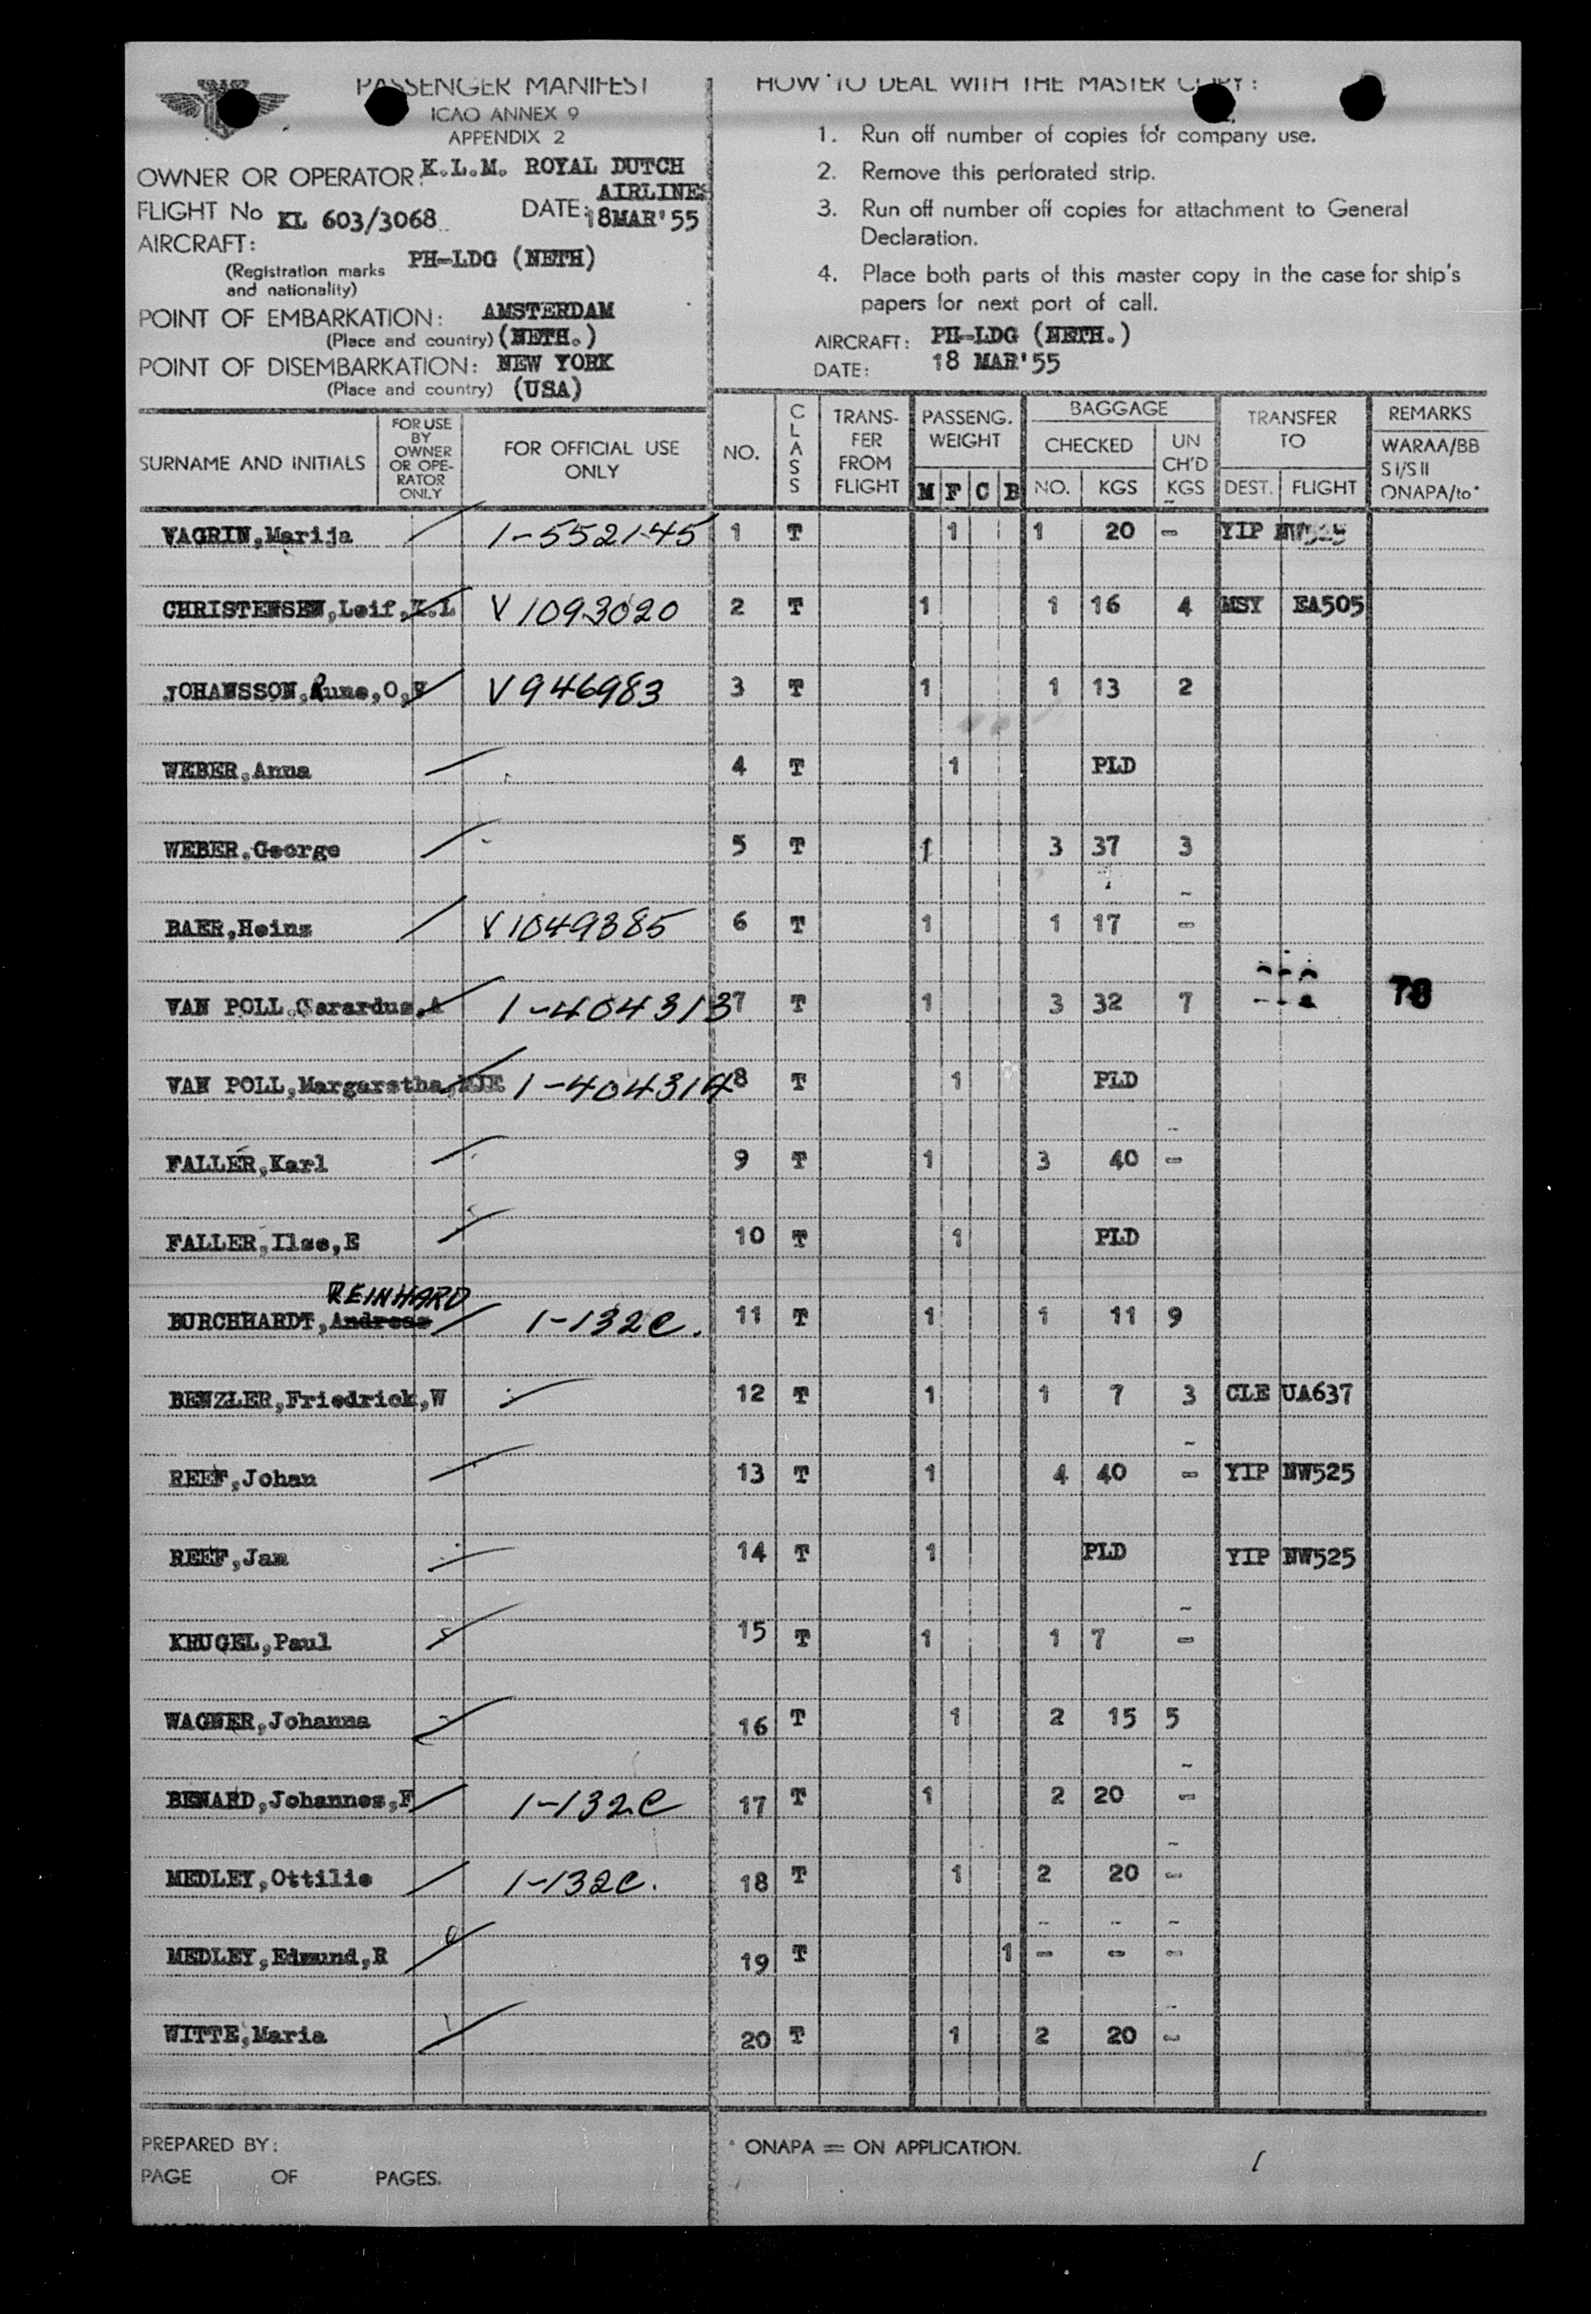 PASSENGER MANIFEST
ICAO ANNEX 9
APPENDIX 2
OWNER OR OPERATOR: K.L.M. ROYAL DUTCH
AIRLINES
FLIGHT No KL 603/3068 DATE: 18MAR'55
AIRCRAFT:
(Registration marks PH-LDG (NETH)
and nationality)
POINT OF EMBARKATION: AMSTERDAM
(Place and country) (NETH.)
POINT OF DISEMBARKATION: NEW YORK
(Place and country) (USA)
HOW TO DEAL WITH THE MASTER COPY:
1. Run off number of copies for company use.
2. Remove this perforated strip.
3. Run off number off copies for attachment to General
Declaration.
4. Place both parts of this master copy in the case for ship's
papers for next port of call.
AIRCRAFT: PH-LDG (NETH.)
DATE: 18 MAR'55
SURNAME AND INITIALS
FOR USE
BY
OWNER
OR OPE-
RATOR
ONLY
FOR OFFICIAL USE
ONLY
NO.
CLASS
TRANS-
FER
FROM
FLIGHT
PASSENG.
WEIGHT
M F C B
BAGGAGE
CHECKED
NO. KGS
UN
CH'D
KGS
TRANSFER
TO
DEST. FLIGHT
REMARKS
WARAA/BB
S I/S II
ONAPA/to*
VAGRIN,Marija 1-552145 1 T 1 1 20 - YIP NW525
CHRISTENSEN,Leif,K.L V1093020 2 T 1 1 16 4 MSY EA505
JOHANSSON,Rune,O, V946983 3 T 1 1 13 2
WEBER,Anna 4 T 1 PLD
WEBER,George 5 T 1 3 37 3
BAER,Heinz V1049385 6 T 1 1 17 -
VAN POLL,Gerardus,A 1-404313 7 T 1 3 32 7 78
VAN POLL,Margaretha, 1-404314 8 T 1 PLD
FALLER,Karl 9 T 1 3 40 -
FALLER,Ilse,E 10 T 1 PLD
REINHARD
BURCHHARDT,Andreas 1-132c. 11 T 1 1 11 9
BENZLER,Friedrick,W 12 T 1 1 7 3 CLE UA637
REEF,Johan 13 T 1 4 40 - YIP NW525
REEF,Jan 14 T 1 PLD YIP NW525
KRUGEL,Paul 15 T 1 1 7 -
WAGNER,Johanna 16 T 1 2 15 5
BENARD,Johannes,F 1-132c 17 T 1 2 20 -
MEDLEY,Ottilie 1-132c. 18 T 1 2 20 -
MEDLEY,Edmund,R 19 T 1 - - -
WITTE,Maria 20 T 1 2 20 -
PREPARED BY:
PAGE OF PAGES.
* ONAPA = ON APPLICATION.